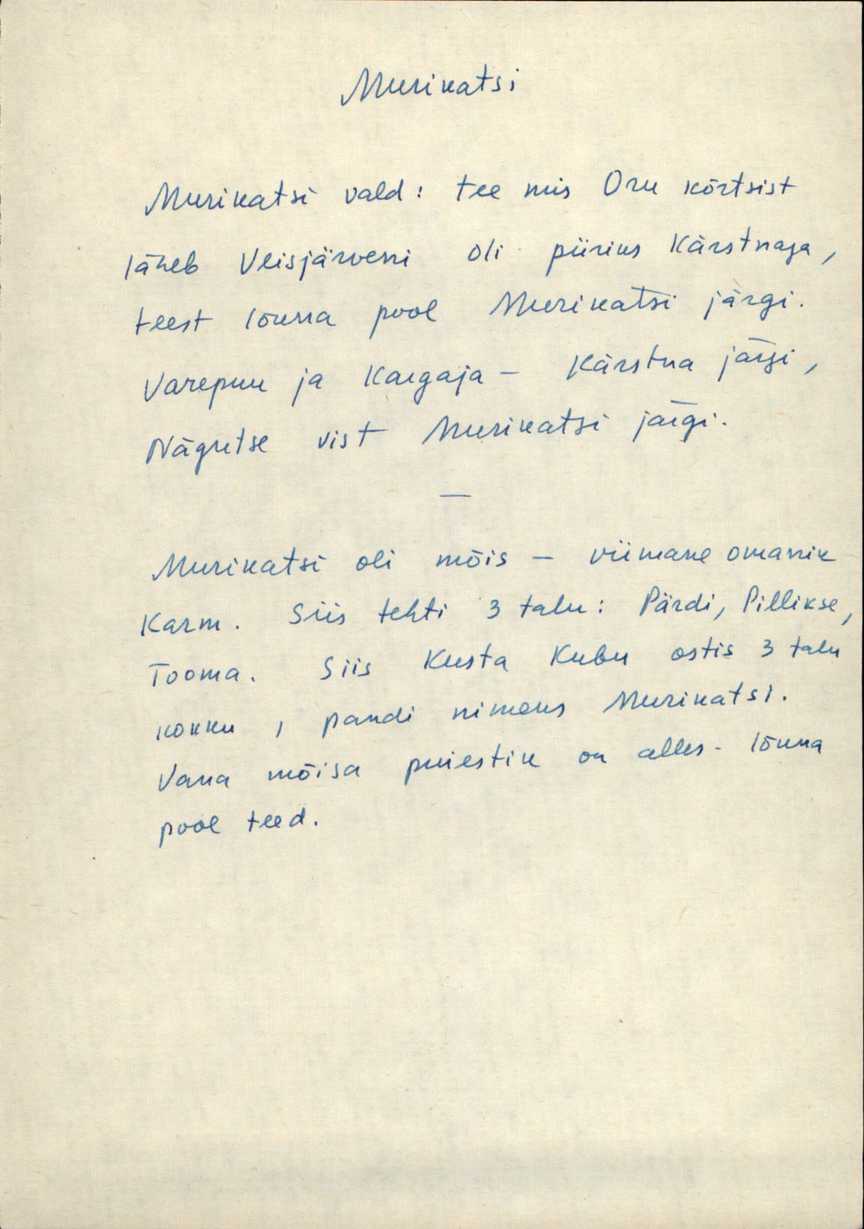 Murikatsi
Murikatsi vald: tee mis Oru kõrtsist
läheb Veisjärveni oli piiriks Kärstnaga,
teest lõuna pool Murikatsi järgi.
Varepuu ja Kaigaja – Kärstna järgi,
Nägutse vist Murikatsi järgi.
—
Murikatsi oli mõis – viimane omanik
Karm. Siis tehti 3 talu: Pärdi, Pillikse,
Tooma. Siis Kusta Kubu ostis 3 talu
kokku, pandi nimeks Murikatsi.
Vana mõisa puiestik on alles - lõuna
pool teed.